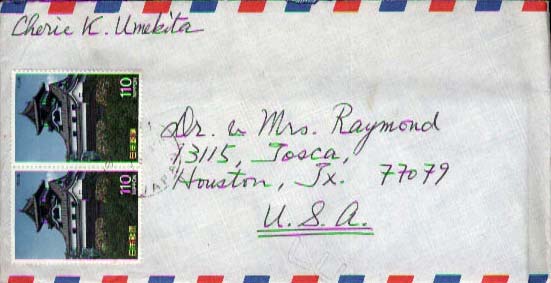 Cherie K. Umekita
110
NIPPON
日本郵便
110
NIPPON
日本郵便
JAPAN
Dr. & Mrs. Raymond
13115, Tosca,
Houston, Tx. 77079
U.S.A.